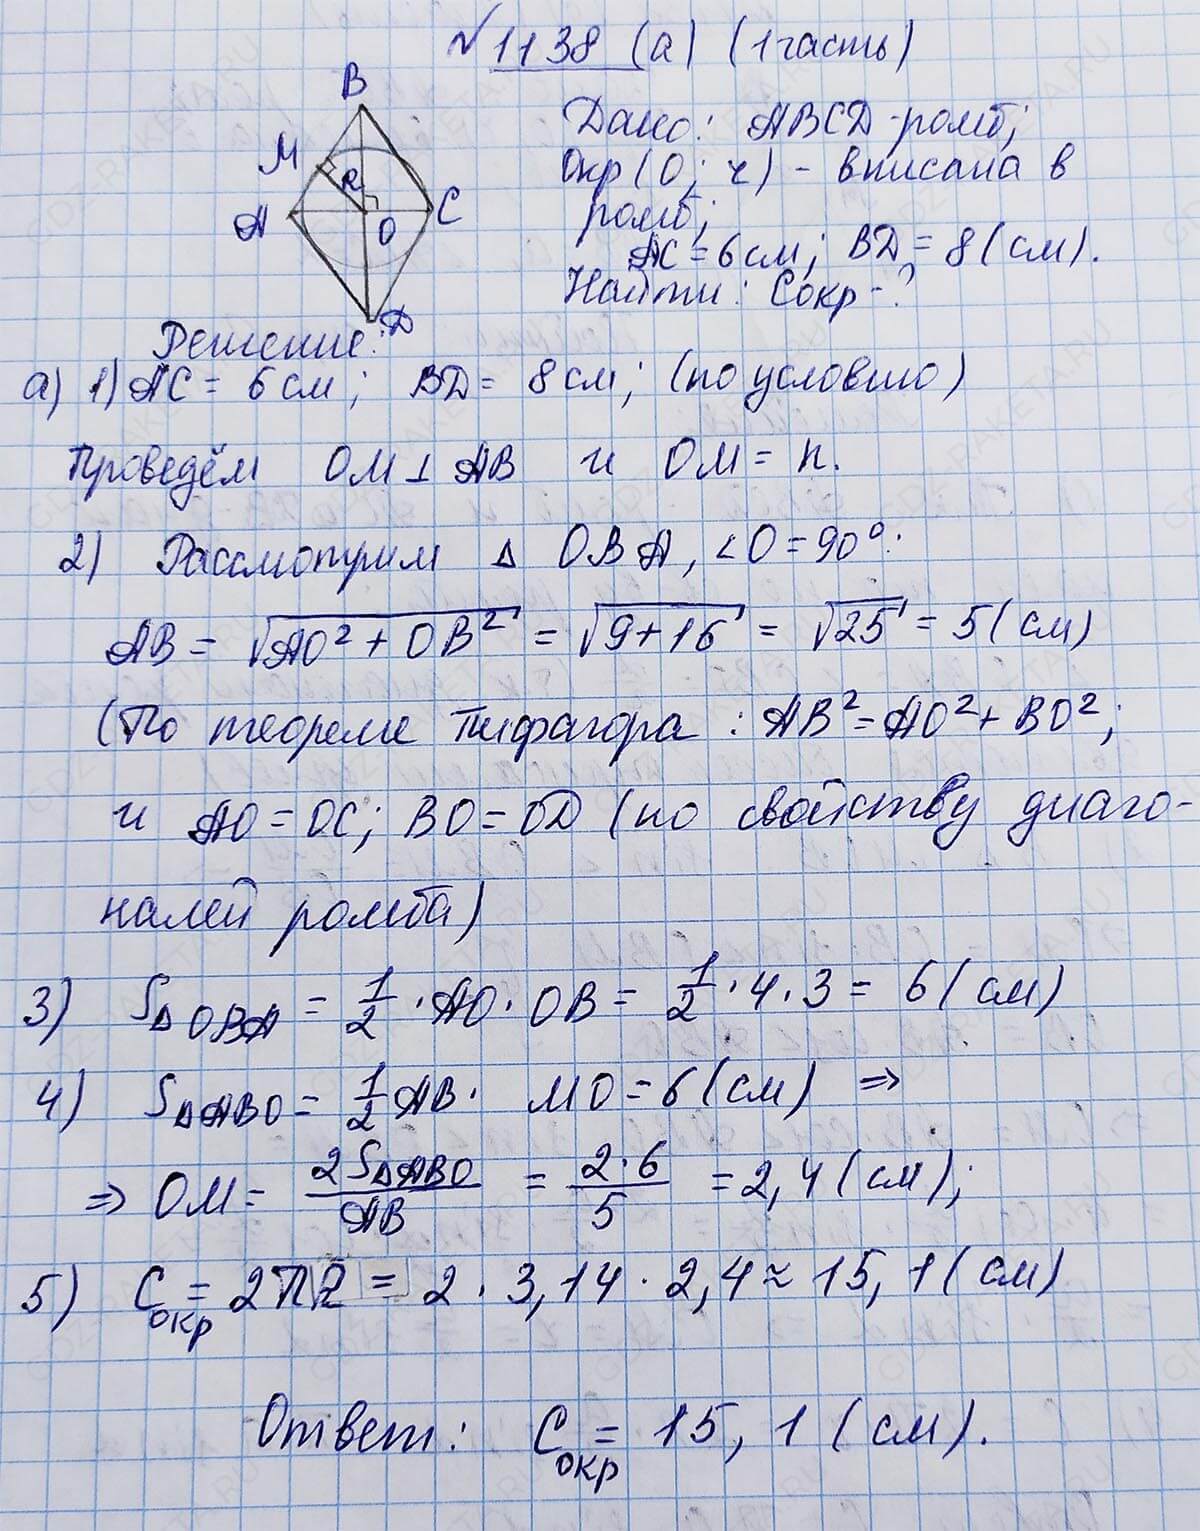 №1138 (а) (1 часть)
B
M
R
A
C
O
D
Дано: ABCD-ромб;
Окр(O; r) - вписана в
ромб;
AC = 6 см; BD = 8 (см).
Найти: Cокр-?
Решение:
а) 1) AC = 6 см; BD = 8 см; (по условию)
Проведём OM ⊥ AB и OM = r.
2) Рассмотрим Δ OBA, ∠O = 90°:
AB = √AO² + OB² = √9+16 = √25 = 5 (см)
(По теореме Пифагора: AB² = AO² + BO²;
и AO = OC; BO = OD (по свойству диаго-
налей ромба)
3) SΔOBA = 1/2 · AO · OB = 1/2 · 4 · 3 = 6 (см)
4) SΔABO = 1/2 AB · MO = 6 (см) ⇒
⇒ OM = 2SΔABO/AB = 2·6/5 = 2,4 (см);
5) Cокр = 2πR = 2 · 3,14 · 2,4 ≈ 15,1 (см)
Ответ: Cокр = 15,1 (см).